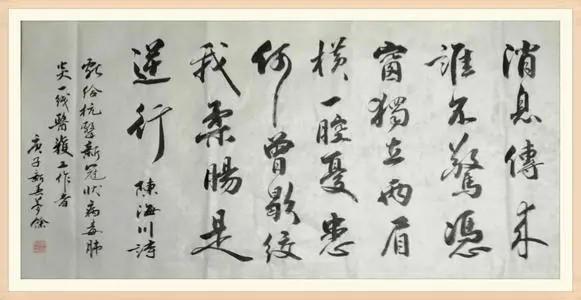 消息傳來
誰不驚憑
窗獨立兩眉
橫一腔憂患
何曾歇絞
我柔腸是
逆行 陳海川詩
獻给抗擊新冠狀病毒肺
炎一线醫護工作者
庚子新春